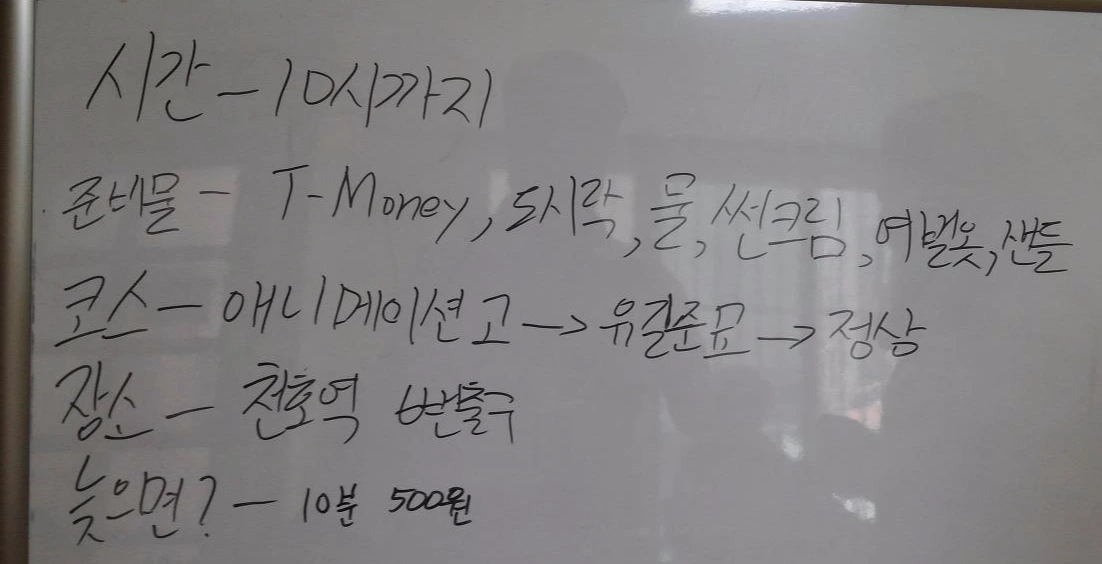 시간 - 10시까지
준비물 - T-Money, 도시락, 물, 썬크림, 여벌옷, 샌들
코스 - 애니메이션고 → 유길준묘 → 정상
장소 - 천호역 6번출구
늦으면? - 10분 500원